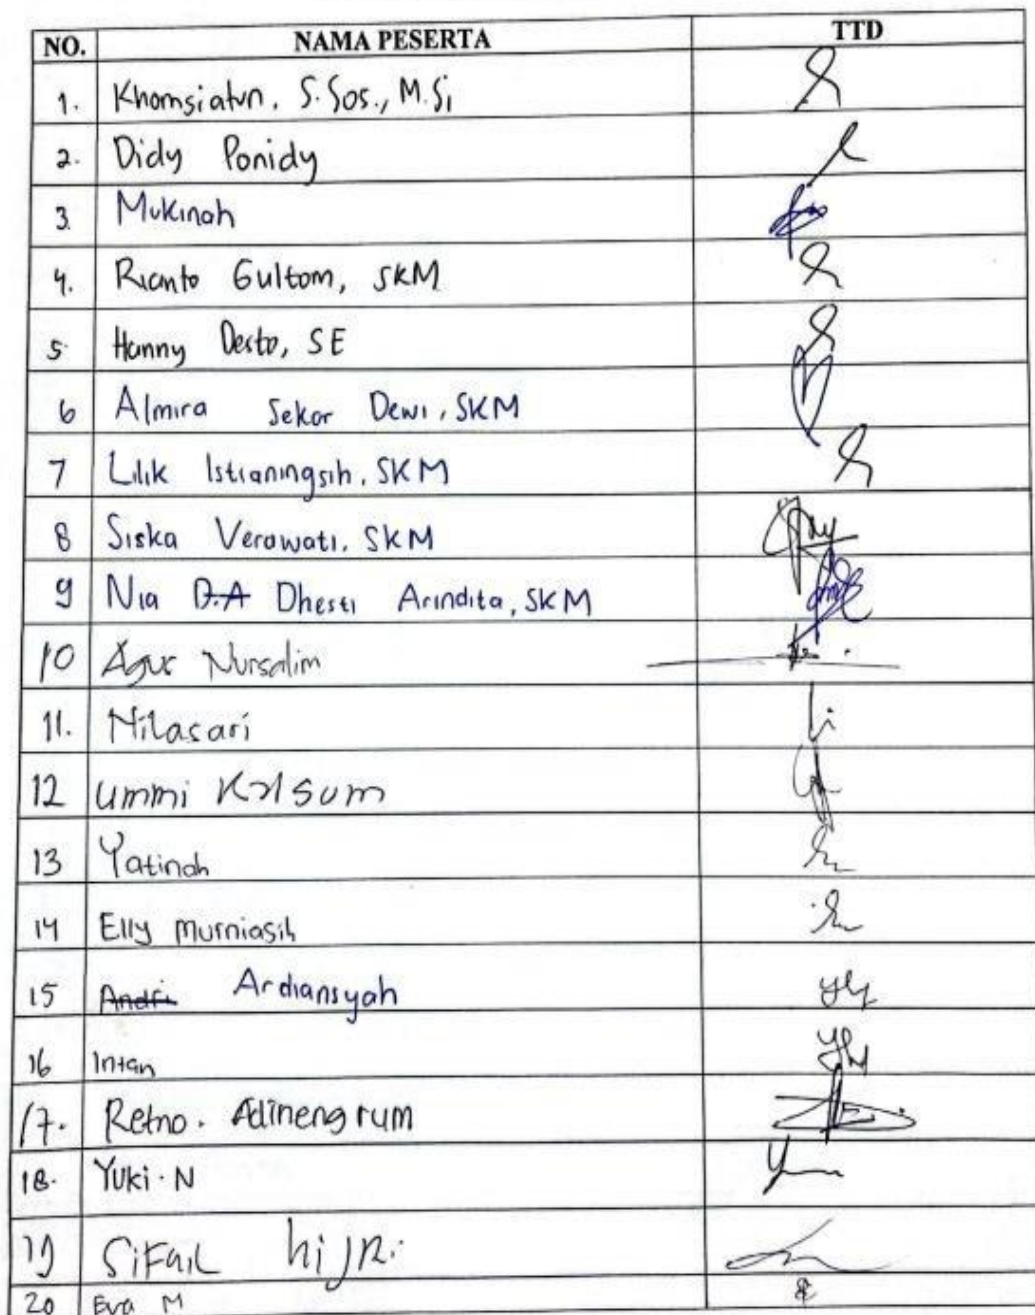 NO. NAMA PESERTA TTD
1. Khomsiatun, S.Sos., M.Si
2. Didy Ponidy
3. Mukinah
4. Rianto Gultom, SKM
5. Hanny Desto, SE
6 Almira Sekar Dewi, SKM
7 Lilik Istianingsih, SKM
8 Siska Verawati, SKM
9 Nia D.A Dhesti Arindita, SKM
10 Agus Nursalim
11. Nilasari
12 Ummi Kalsum
13 Yatinah
14 Elly Murniasih
15 Andri Ardiansyah
16 Intan
17. Retno. Adinengrum
18. Yuki. N
19 SiFaiL hijRi
20 Eva M